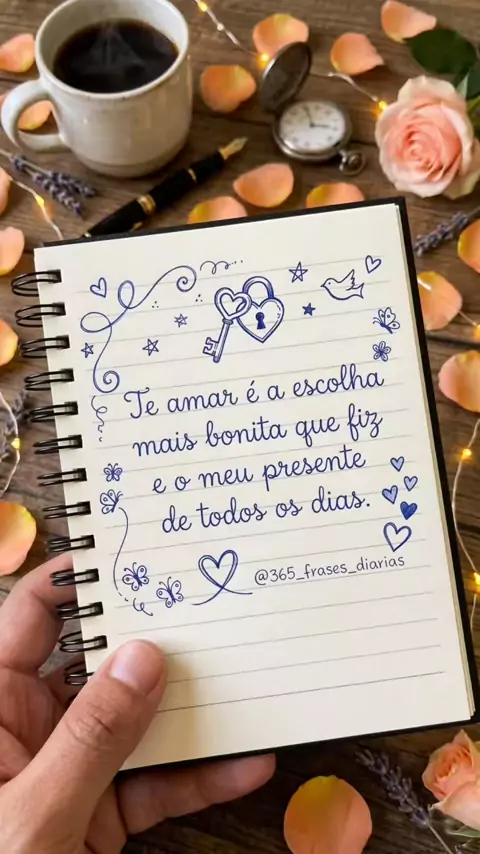 Te amar é a escolha
mais bonita que fiz
e o meu presente
de todos os dias.
@365_frases_diarias